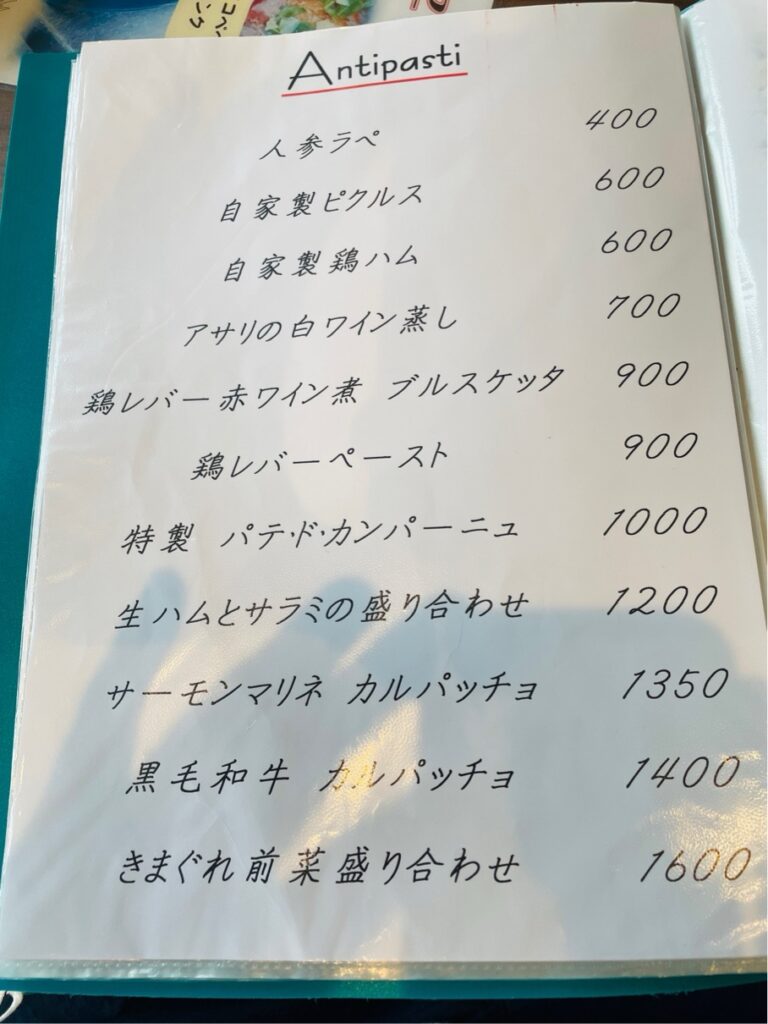 Antipasti
人参ラペ 400
自家製ピクルス 600
自家製鶏ハム 600
アサリの白ワイン蒸し 700
鶏レバー赤ワイン煮 ブルスケッタ 900
鶏レバーペースト 900
特製 パテ・ド・カンパーニュ 1000
生ハムとサラミの盛り合わせ 1200
サーモンマリネ カルパッチョ 1350
黒毛和牛 カルパッチョ 1400
きまぐれ前菜盛り合わせ 1600